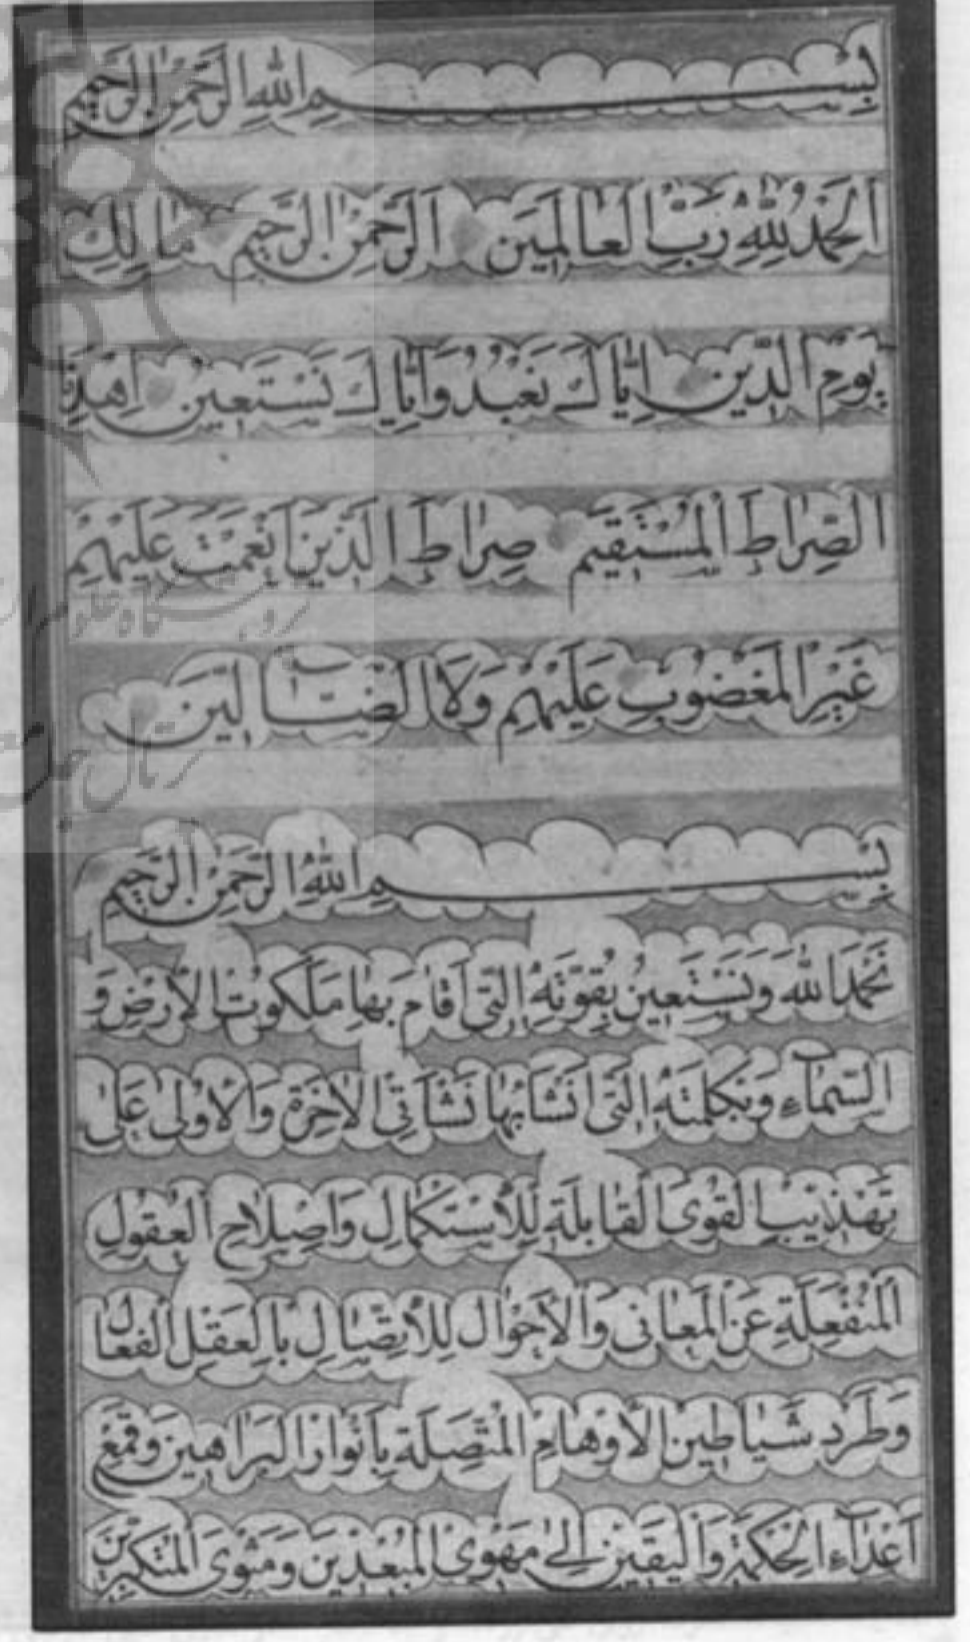 بِسْمِ اللهِ الرَّحْمٰنِ الرَّحِيمِ
اَلْحَمْدُ لِلّٰهِ رَبِّ الْعَالَمِينَ اَلرَّحْمٰنِ الرَّحِيمِ مَالِكِ
يَوْمِ الدِّينِ اِيَّاكَ نَعْبُدُ وَاِيَّاكَ نَسْتَعِينُ اِهْدِنَا
الصِّرَاطَ الْمُسْتَقِيمَ صِرَاطَ الَّذِينَ اَنْعَمْتَ عَلَيْهِمْ
غَيْرِ الْمَغْضُوبِ عَلَيْهِمْ وَلَا الضَّالِّينَ
بِسْمِ اللهِ الرَّحْمٰنِ الرَّحِيمِ
نَحْمَدُ اللهَ وَنَسْتَعِينُ بِقُوَّتِهِ الَّتِي اَقَامَ بِهَا مَلَكُوتَ الْاَرْضِ وَ
السَّمَآءِ وَبِكَلِمَتِهِ الَّتِي اَنْشَأَ بِهَا نَشْأَتَيِ الْاٰخِرَةِ وَالْاُولىٰ عَلىٰ
تَهْذِيبِ الْقُوَى الْقَابِلَةِ لِلْاِسْتِكْمَالِ وَاِصْلَاحِ الْعُقُولِ
الْمُنْفَعِلَةِ عَنِ الْمَعَانِي وَالْاَحْوَالِ لِلْاِتِّصَالِ بِالْعَقْلِ الْفَعَّالِ
وَطَرْدِ شَيَاطِينِ الْاَوْهَامِ الْمُتَّصِلَةِ بِاَنْوَارِ الْبَرَاهِينِ وَقَمْعِ
اَعْدَآءِ الْحِكْمَةِ وَالْيَقِينِ اِلىٰ مَهْوَى الْمُبْعَدِينَ وَمَثْوَى الْمُتَكَبِّرِينَ